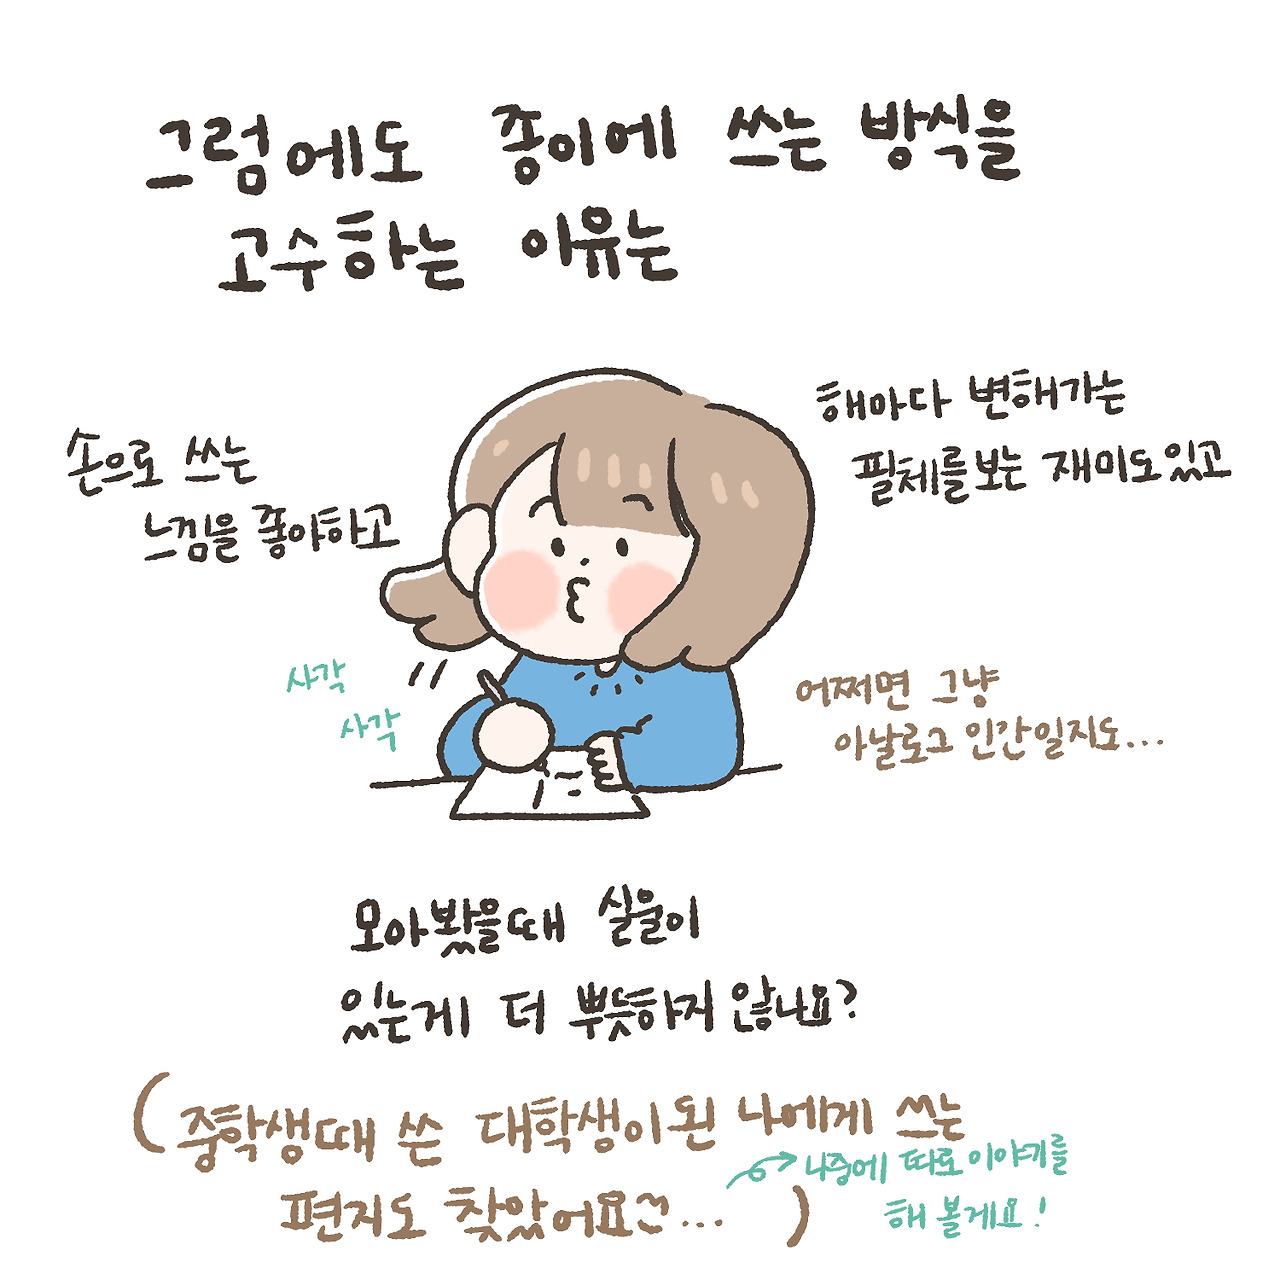 그럼에도 종이에 쓰는 방식을
고수하는 이유는
손으로 쓰는
느낌을 좋아하고
해마다 변해가는
필체를 보는 재미도있고
사각
사각
어쩌면 그냥
아날로그 인간일지도...
모아봤을때 실물이
있는게 더 뿌듯하지 않나요?
(중학생때 쓴 대학생이된 나에게 쓰는
편지도 찾았어요ㅋㅋ...)
나중에 따로 이야기를
해 볼게요!